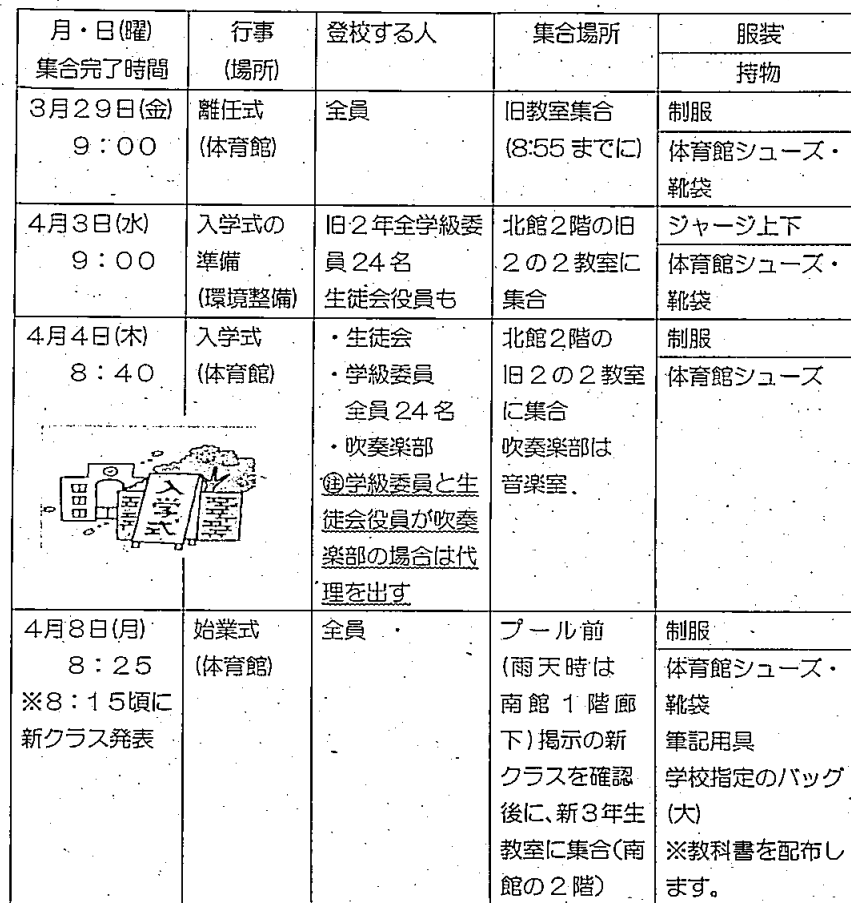 月・日(曜)
集合完了時間
行事
(場所)
登校する人
集合場所
服装
持物
3月29日(金)
9:00
離任式
(体育館)
全員
旧教室集合
(8:55までに)
制服
体育館シューズ・
靴袋
4月3日(水)
9:00
入学式の
準備
(環境整備)
旧2年全学級委
員24名
生徒会役員も
北館2階の旧
2の2教室に
集合
ジャージ上下
体育館シューズ・
靴袋
4月4日(木)
8:40
入学式
(体育館)
・生徒会
・学級委員
全員24名
・吹奏楽部
㊟学級委員と生
徒会役員が吹奏
楽部の場合は代
理を出す
北館2階の
旧2の2教室
に集合
吹奏楽部は
音楽室
制服
体育館シューズ
入学式
4月8日(月)
8:25
※8:15頃に
新クラス発表
始業式
(体育館)
全員
プール前
(雨天時は
南館1階廊
下)掲示の新
クラスを確認
後に、新3年生
教室に集合(南
館の2階)
制服
体育館シューズ・
靴袋
筆記用具
学校指定のバッグ
(大)
※教科書を配布し
ます。